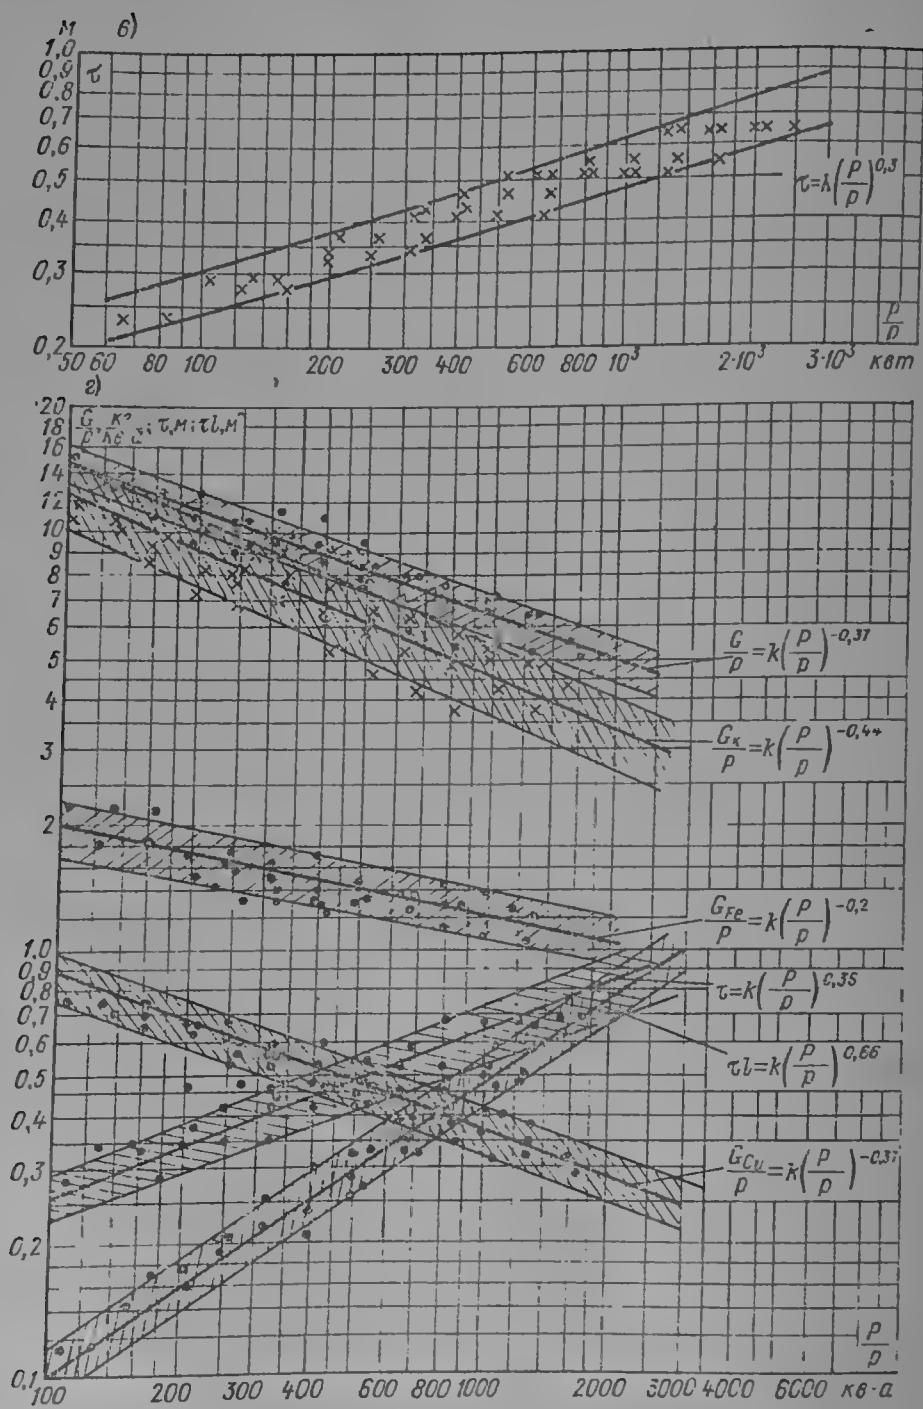 в)
м
τ
1,0
0,9
0,8
0,7
0,6
0,5
0,4
0,3
0,2
τ=k(P/p)^0,3
P/p
50 60 80 100 200 300 400 600 800 10³ 2·10³ 3·10³ квт
г)
τ,м; τl,м
20
18
16
14
12
10
9
8
7
6
5
4
3
2
1,0
0,9
0,8
0,7
0,6
0,5
0,4
0,3
0,2
0,1
G/p=k(P/p)^-0,37
Gк/p=k(P/p)^-0,44
G_Fe/p=k(P/p)^-0,2
τ=k(P/p)^0,35
τl=k(P/p)^0,66
G_Cu/p=k(P/p)^-0,37
P/p
100 200 300 400 600 800 1000 2000 3000 4000 6000 кв·а